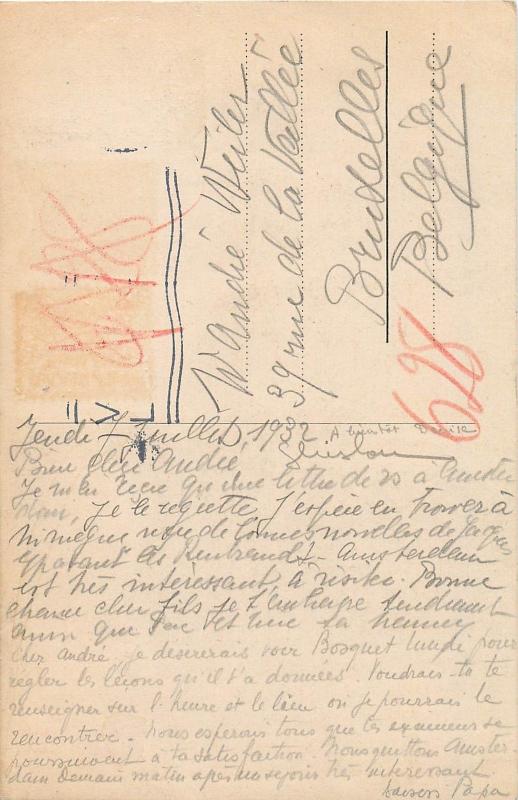 André Weiler
39 rue de la Vallée
Bruxelles
Belgique
628
Jeudi 7 Juillet 1932
A bientôt Denise
Bien cher André,
Je n'ai reçu qu'une lettre de vs à Amster
dam, je le regrette, j'espère en trouver à
Nimègue de bonnes nouvelles de
les Rembrandt - Amsterdam
est très intéressant à visiter. Bonne
chance cher fils je t'embrasse tendrement
ainsi que
Cher André je desirerais voir Bosquet lundi pour
régler les leçons qu'il t'a données. Voudrais-tu te
renseigner sur l'heure et le lieu où je pourrais le
rencontrer - Nous esperons tous que tes examens se
poursuivent à ta satisfaction. Nous quittons Amster
dam Demain matin après un sejour très interessant
baisers Papa